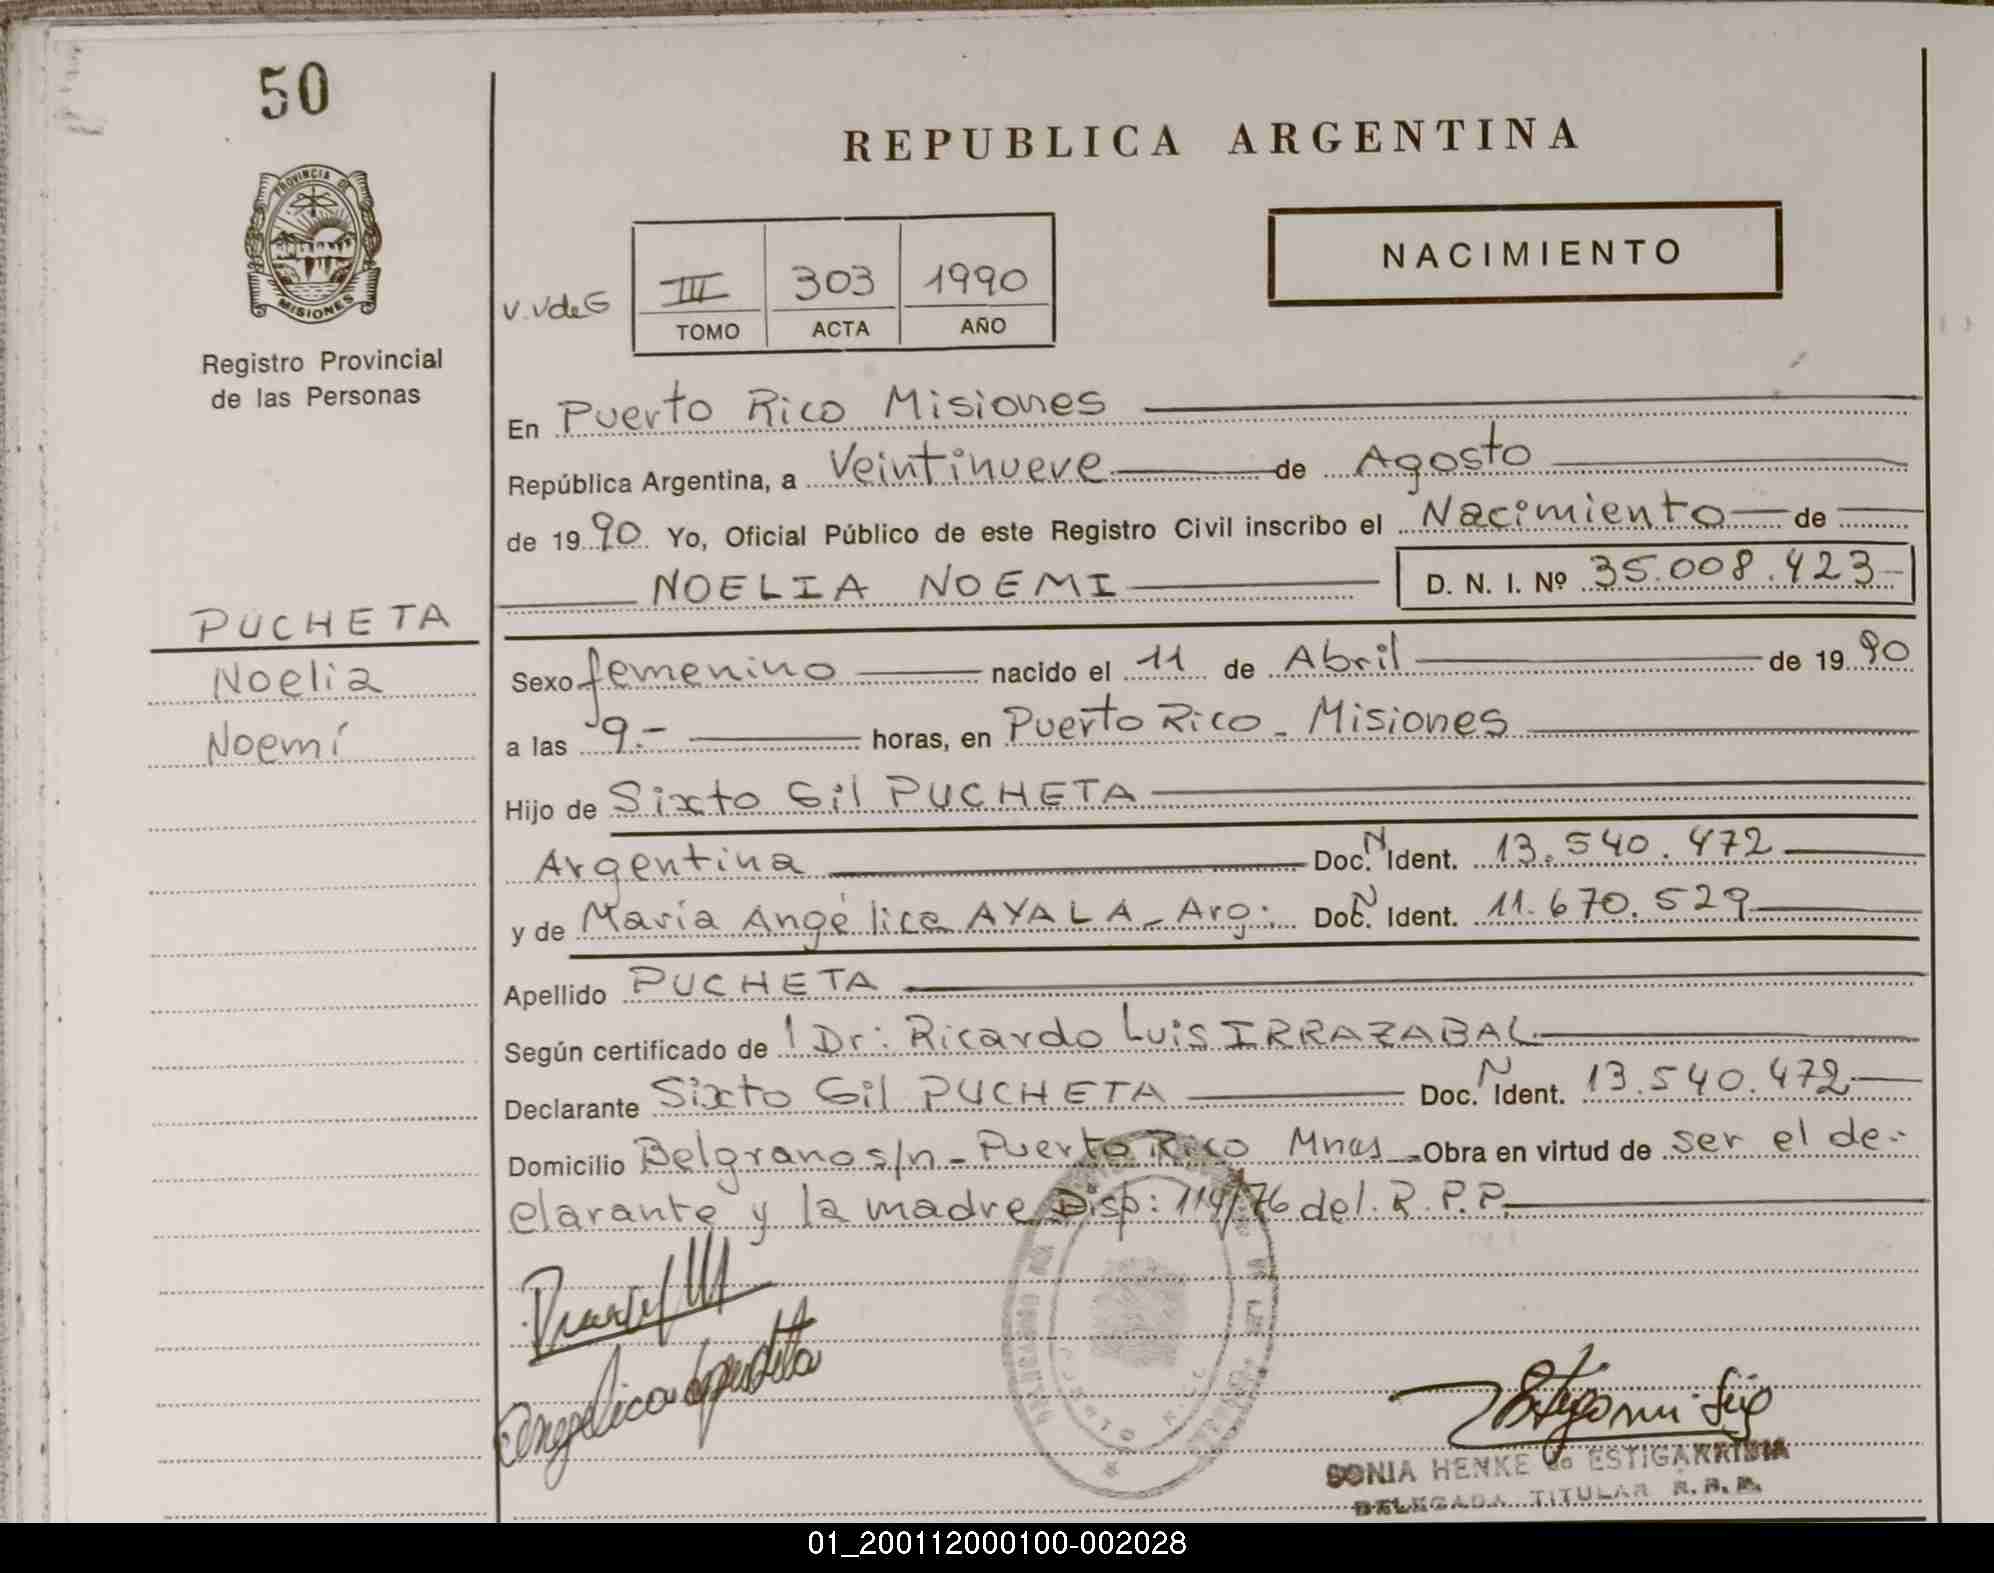 50
REPUBLICA ARGENTINA
PROVINCIA DE
MISIONES
NACIMIENTO
V.VdeG
III 303 1990
TOMO ACTA AÑO
Registro Provincial
de las Personas
En Puerto Rico Misiones
República Argentina, a Veintinueve de Agosto
de 1990 Yo, Oficial Público de este Registro Civil inscribo el Nacimiento de
NOELIA NOEMI D. N. I. Nº 35.008.423
PUCHETA
Noelia
Noemí
Sexo femenino nacido el 11 de Abril de 1990
a las 9.- horas, en Puerto Rico - Misiones
Hijo de Sixto Gil PUCHETA
Argentina Doc. N Ident. 13.540.472
y de María Angélica AYALA - Arg: Doc. N Ident. 11.670.529
Apellido PUCHETA
Según certificado de l Dr: Ricardo Luis IRRAZABAL
Declarante Sixto Gil PUCHETA Doc. N Ident. 13.540.472
Domicilio Belgrano s/n - Puerto Rico Mnes Obra en virtud de ser el de-
clarante y la madre Disp: 114/76 del R.P.P.
SONIA HENKE de ESTIGARRIBIA
DELEGADA TITULAR R.P.P.
01_200112000100-002028